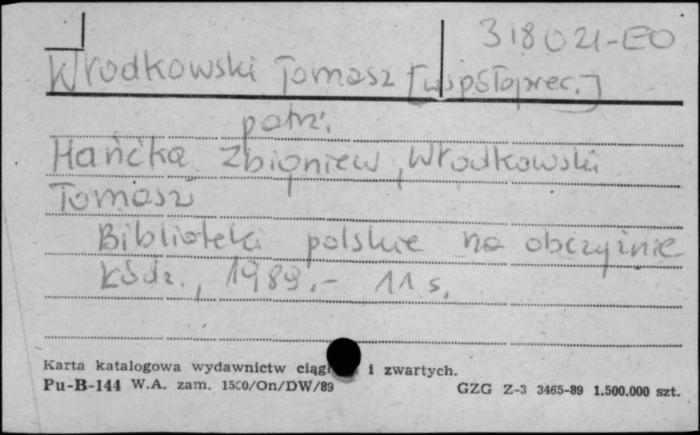 318021-EO
Włodkowski Tomasz [współprec.]
patrz:
Hańćka Zbigniew, Włodkowski
Tomasz
Biblioteki polskie na obczyźnie
Łódz., 1989.- 11 s.
Karta katalogowa wydawnictw ciągł i zwartych.
Pu-B-144 W.A. zam. 1500/On/DW/89 GZG Z-3 3465-89 1.500.000 szt.